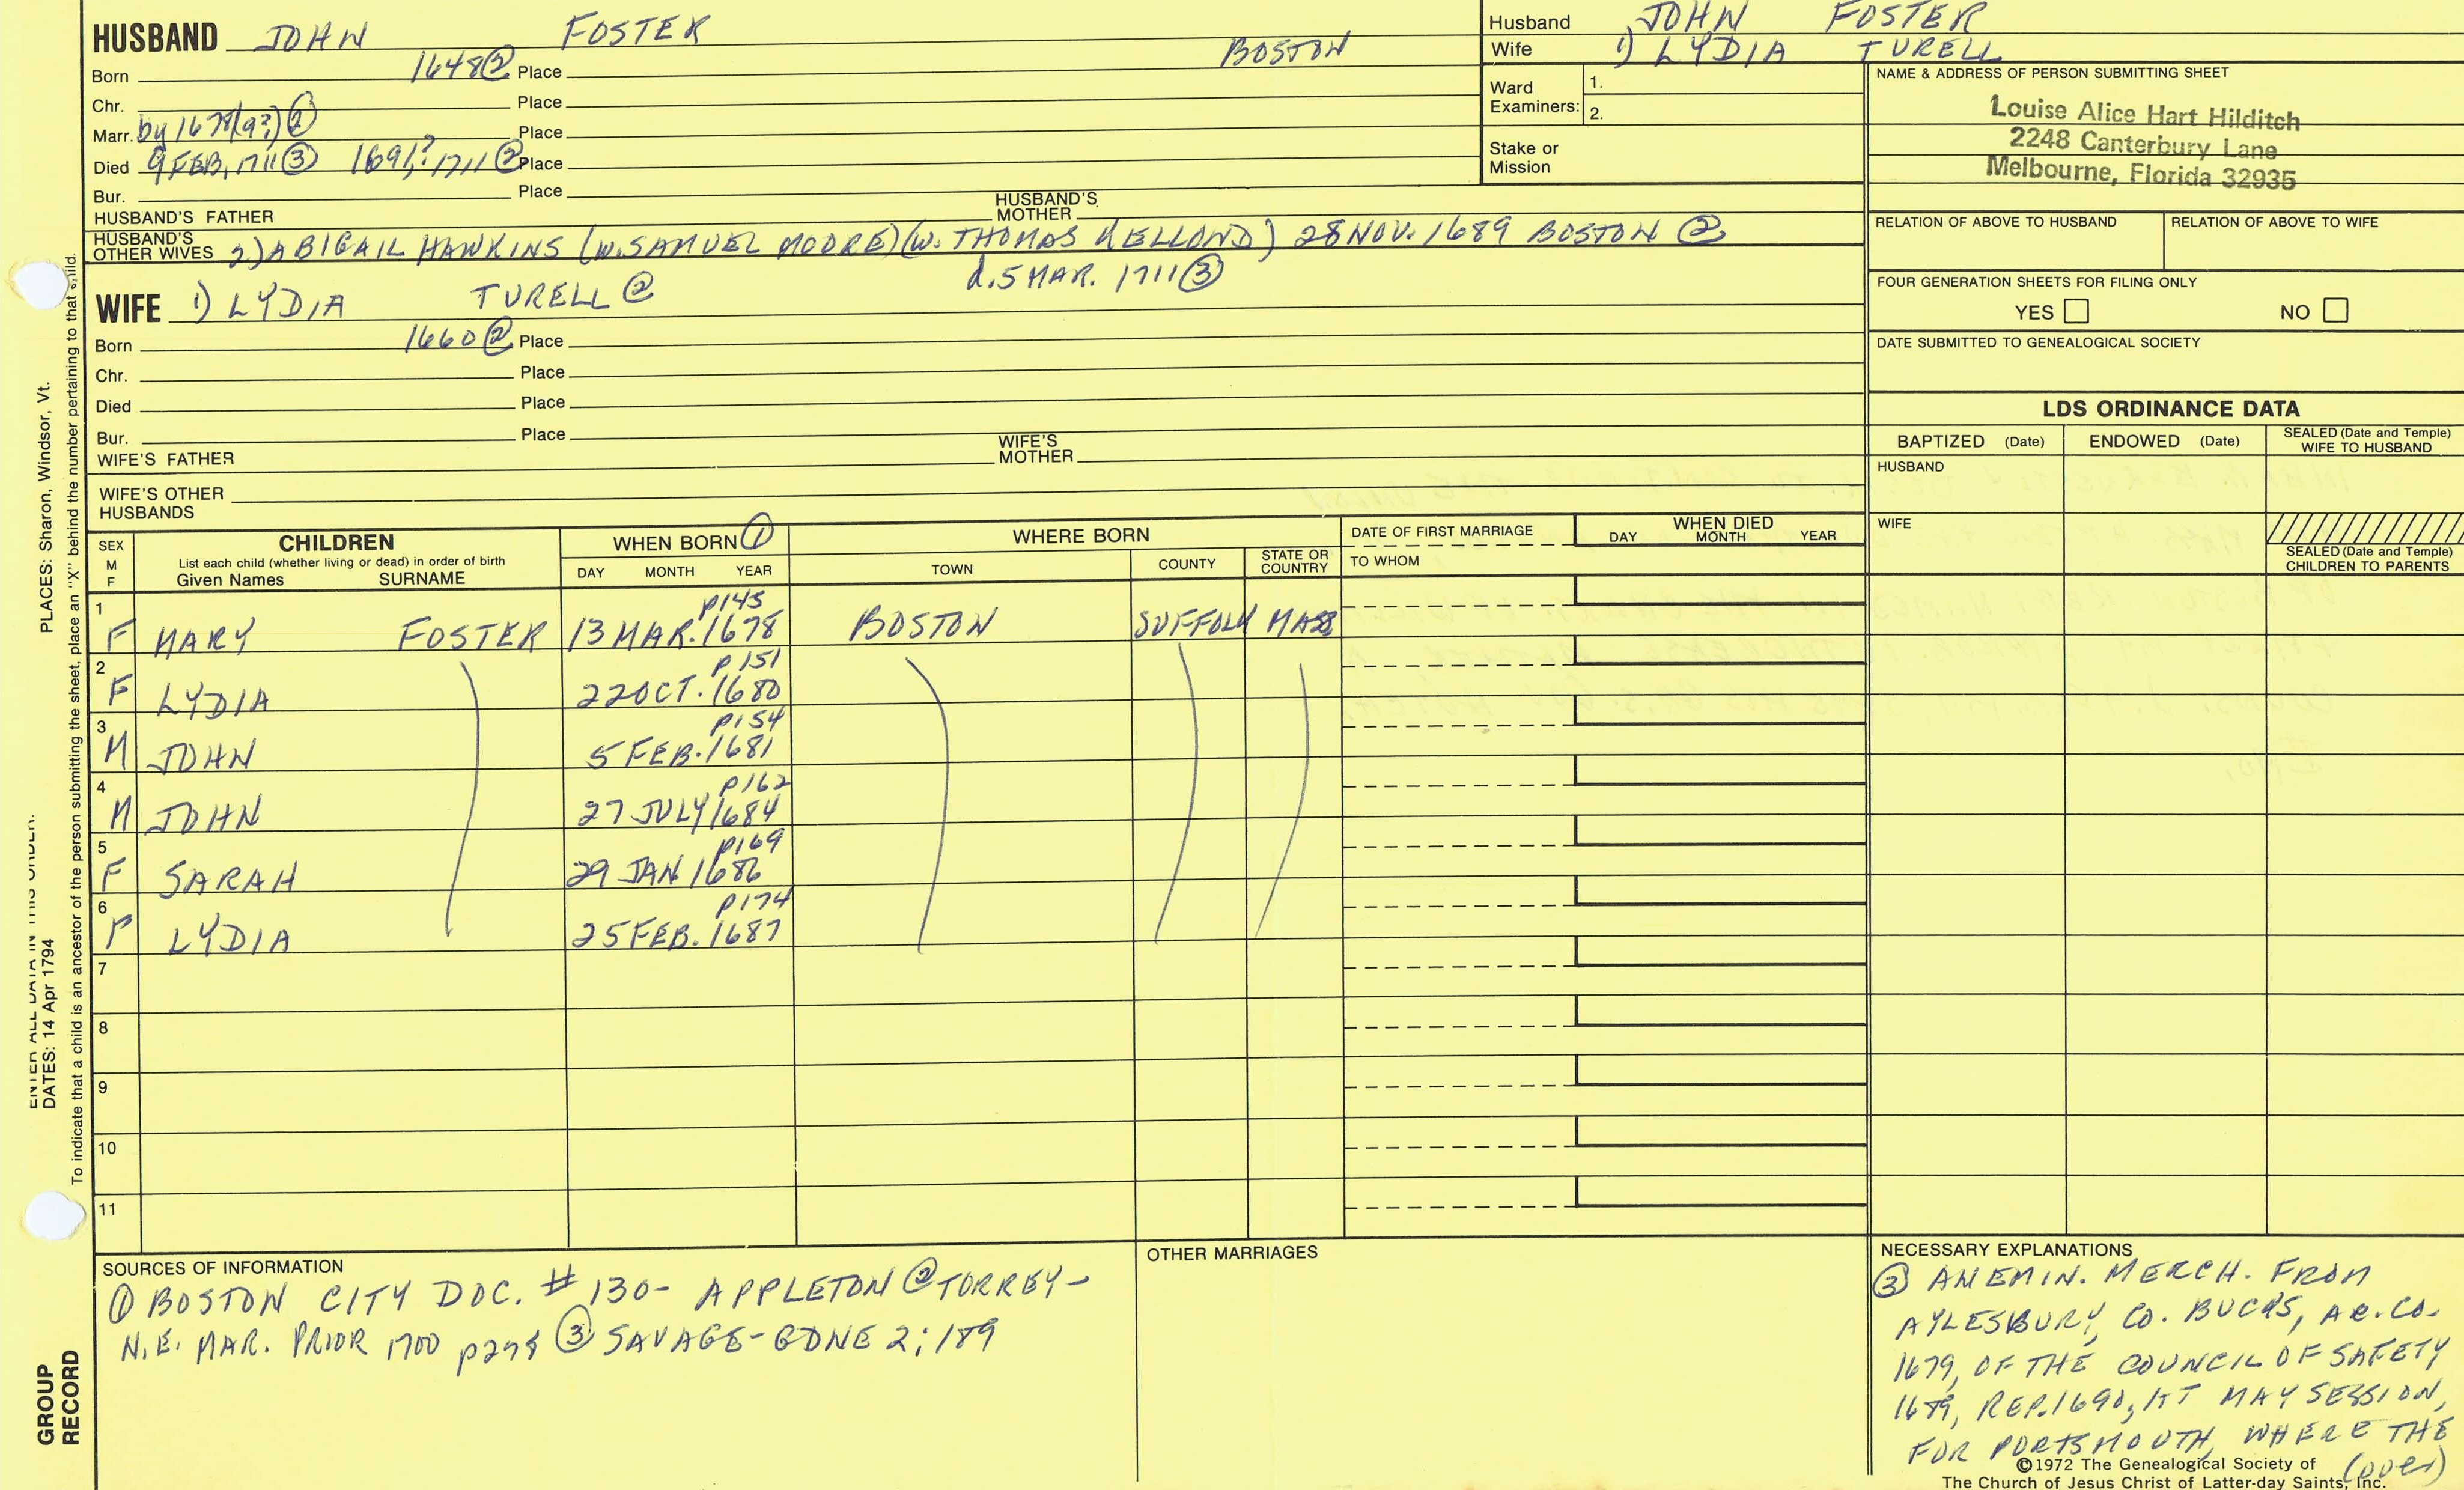 HUSBAND JOHN FOSTER
Born 1648② Place BOSTON
Chr. Place
Marr. by 1678(9?)② Place
Died 9 FEB, 1711③ 1691,? 1711② Place
Bur. Place
HUSBAND'S FATHER HUSBAND'S MOTHER
HUSBAND'S OTHER WIVES 2) ABIGAIL HAWKINS (W. SAMUEL MOORE) (W. THOMAS KELLOND) 28 NOV. 1689 BOSTON ②
d. 5 MAR. 1711③
WIFE 1) LYDIA TURELL②
Born 1660② Place
Chr. Place
Died Place
Bur. Place
WIFE'S FATHER WIFE'S MOTHER
WIFE'S OTHER HUSBANDS
Husband JOHN FOSTER
Wife 1) LYDIA TURELL
Ward Examiners: 1.
2.
Stake or Mission
NAME & ADDRESS OF PERSON SUBMITTING SHEET
Louise Alice Hart Hilditch
2248 Canterbury Lane
Melbourne, Florida 32935
RELATION OF ABOVE TO HUSBAND RELATION OF ABOVE TO WIFE
FOUR GENERATION SHEETS FOR FILING ONLY
YES NO
DATE SUBMITTED TO GENEALOGICAL SOCIETY
LDS ORDINANCE DATA
BAPTIZED (Date) ENDOWED (Date) SEALED (Date and Temple) WIFE TO HUSBAND
HUSBAND
WIFE
SEALED (Date and Temple) CHILDREN TO PARENTS
SEX M F
CHILDREN
List each child (whether living or dead) in order of birth
Given Names SURNAME
WHEN BORN ①
DAY MONTH YEAR
WHERE BORN
TOWN COUNTY STATE OR COUNTRY
DATE OF FIRST MARRIAGE
TO WHOM
WHEN DIED
DAY MONTH YEAR
1 p145
F MARY FOSTER 13 MAR. 1678 BOSTON SUFFOLK MASS
2 p151
F LYDIA 22 OCT. 1680
3 p154
M JOHN 5 FEB. 1681
4 p162
M JOHN 27 JULY 1684
5 p169
F SARAH 29 JAN 1686
6 p174
F LYDIA 25 FEB. 1687
7
8
9
10
11
SOURCES OF INFORMATION
① BOSTON CITY DOC. # 130- APPLETON ② TORREY-
N.E. MAR. PRIOR 1700 ③ SAVAGE-GDNE 2:189
OTHER MARRIAGES
NECESSARY EXPLANATIONS
③ AN EMIN. MERCH. FROM
AYLESBURY, CO. BUCKS, AR. CO.
1679, OF THE COUNCIL OF SAFETY
1689, REP. 1690, MAY SESSION,
FOR PORTSMOUTH, WHERE THE
(over)
©1972 The Genealogical Society of
The Church of Jesus Christ of Latter-day Saints, Inc.
PLACES: Sharon, Windsor, Vt.
ENTER ALL DATA IN THIS ORDER:
DATES: 14 Apr 1794
To indicate that a child is an ancestor of the person submitting the sheet, place an "X" behind the number pertaining to that child.
GROUP
RECORD